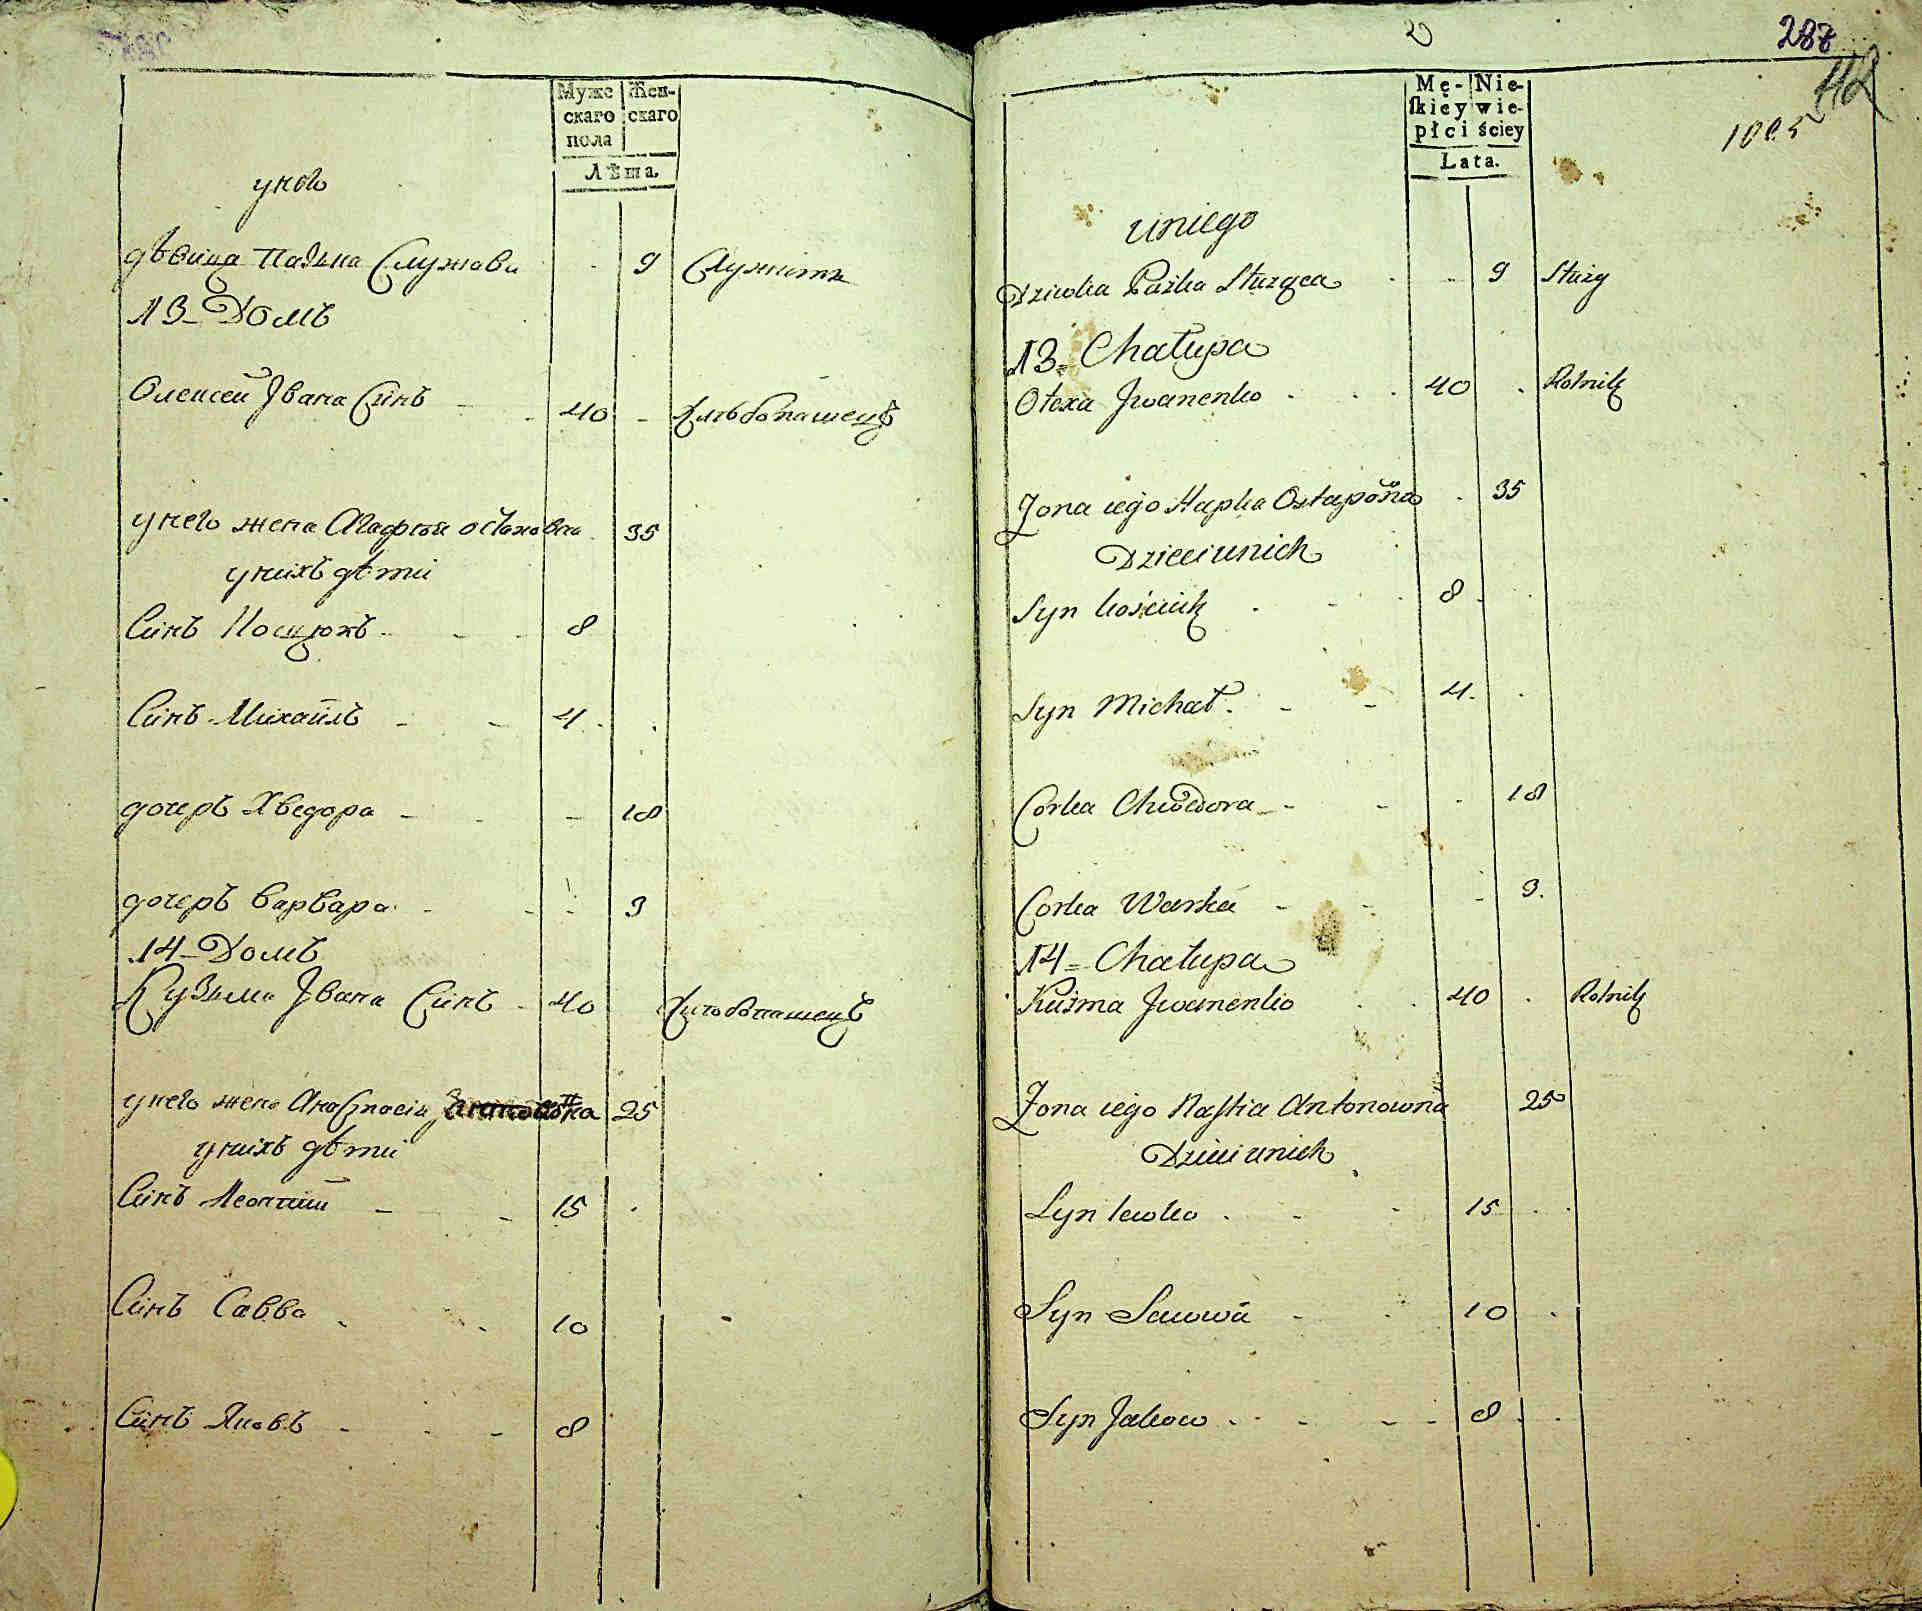 Муже
скаго
пола
Жен-
скаго
Лѣта.
у него
дѣвица Пазька Служаби 9 Служитъ
13 = Домъ
Олексей Ивана Синъ 40 Хлѣбопашецъ
у него жена Агафѣя Остаховна 35
у нихъ дѣти
Синъ Костюкъ 8
Синъ Михайлъ 4
дочерь Хведора 18
дочерь Варвара 9
14 = Домъ
Кузьма Ивана Синъ 40 Хлѣбопашецъ
у него жена Анастасія 25
у нихъ дѣти
Синъ Леонтий 15
Синъ Савва 10
Синъ Яковъ 8
2
287
112
Mę-
ſkiey
płci
Nie-
wie-
ściey
Lata.
u niego
Dziwka Paźka Sturzqca 9 Służy
13 = Chałupa
Ołexa Jwanenko 40 Rolnik
Zona iego Hapka Ostapowna 35
Dzieci u nich
Syn Kościuk 8
Syn Michał 4
Corka Chwedora 18
Corka Warka 9
14 = Chałupa
Kuźma Jwanenko 40 Rolnik
Zona iego Naſtia Antonowna 25
Dzieci u nich
Syn Lewko 15
Syn Sawwa 10
Syn Jakow 8